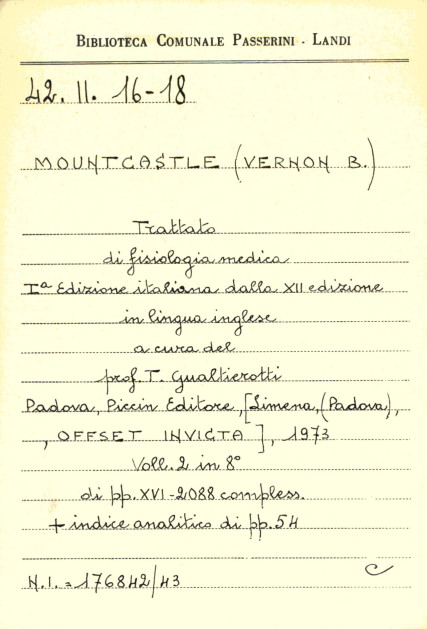 BIBLIOTECA COMUNALE PASSERINI - LANDI
42. II. 16-18
MOUNTCASTLE (VERNON B.)
Trattato
di fisiologia medica
Iª Edizione italiana dalla XII edizione
in lingua inglese
a cura del
prof. T. Gualtierotti
Padova, Piccin Editore, [Limena, (Padova),
, OFFSET INVICTA], 1973
Voll. 2 in 8°
di pp. XVI-2088 compless.
+ indice analitico di pp. 54
N.I. = 176842/43
C